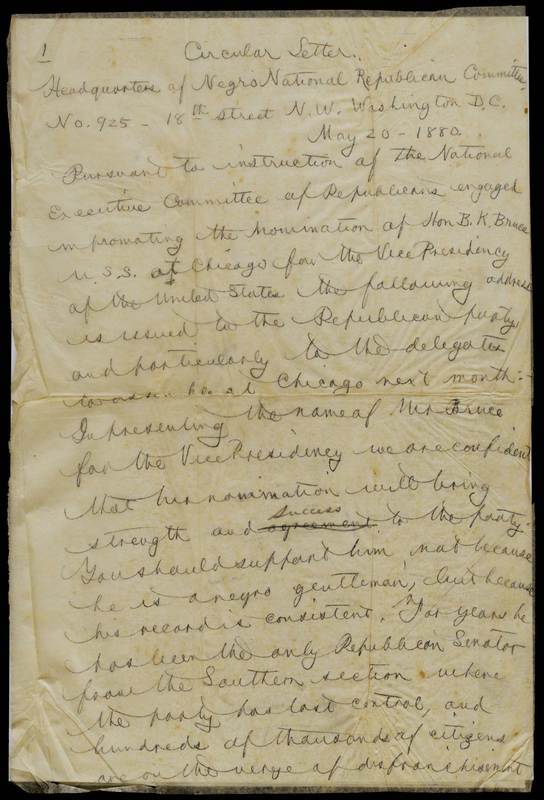 1
Circular Letter.
Headquarters of Negro National Republican Committee,
No. 925 - 18th street N.W. Washington D.C.
May 20 - 1880.
Pursuant to instruction of the National
Executive Committee of Republicans engaged
in promoting the Nomination of Hon B. K. Bruce
U.S.S. at Chicago for the Vice Presidency
of the United States the following address
is issued to the Republican party
and particularly to the delegates
to Chicago next month:-
In presenting the name of Mr Bruce
for the Vice Presidency we are confident
that his nomination will bring
success
strength and agreement to the party.
You should support him, not because
he is a negro gentleman, but because
his record is consistent. For years he
has been the only Republican Senator
from the Southern section where
the party has lost control, and
hundreds of thousands of citizens
are on the verge of disfranchisement